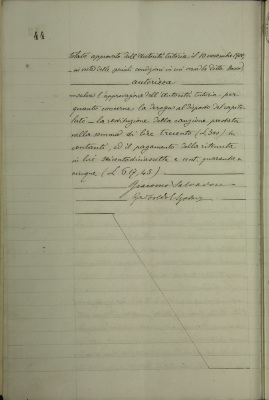 44
tolato approvato dall'Autorità tutoria il 10 novembre 1900,
in vista delle speciali condizioni in cui versa la Ditta
autorizza
salva l'approvazione dell'Autorità tutoria, per
quanto concerne la deroga al disposto del capito
lato - la restituzione della cauzione prestata
nella somma di lire trecento (L 300) in
contanti, ed il pagamento della ritenuta
in lire seicentodiciasette e cent. quaranta
cinque (L 617,45)
Giacomo Salvadori